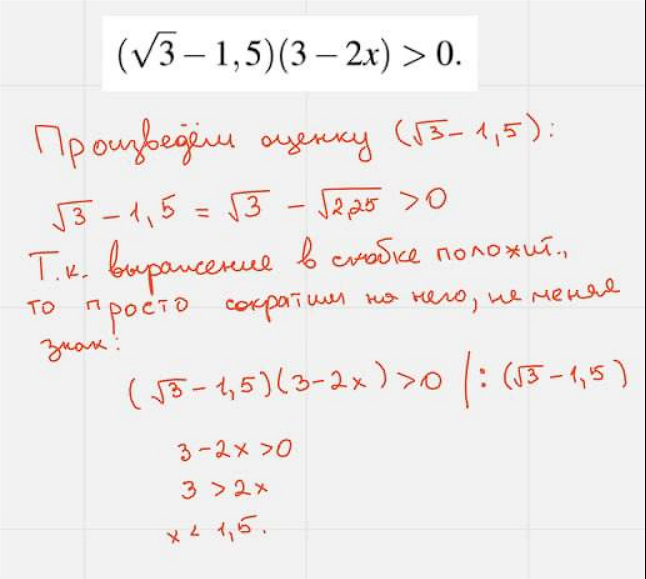 (√3 − 1,5)(3 − 2x) > 0.
Произведём оценку (√3 − 1,5):
√3 − 1,5 = √3 − √2,25 > 0
Т.к. выражение в скобке положит.,
то просто сократим на него, не меняя
знак:
(√3 − 1,5)(3 − 2x) > 0 | : (√3 − 1,5)
3 − 2x > 0
3 > 2x
x < 1,5.